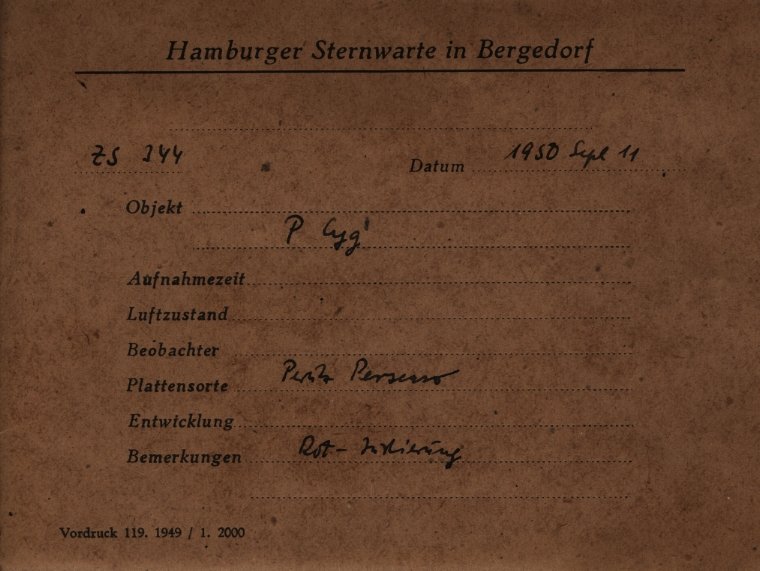 Hamburger Sternwarte in Bergedorf
ZS 344 Datum 1950 Sept 11
Objekt
P Cyg
Aufnahmezeit
Luftzustand
Beobachter
Plattensorte Perutz Persenso
Entwicklung
Bemerkungen Rot-
Vordruck 119. 1949 / 1. 2000